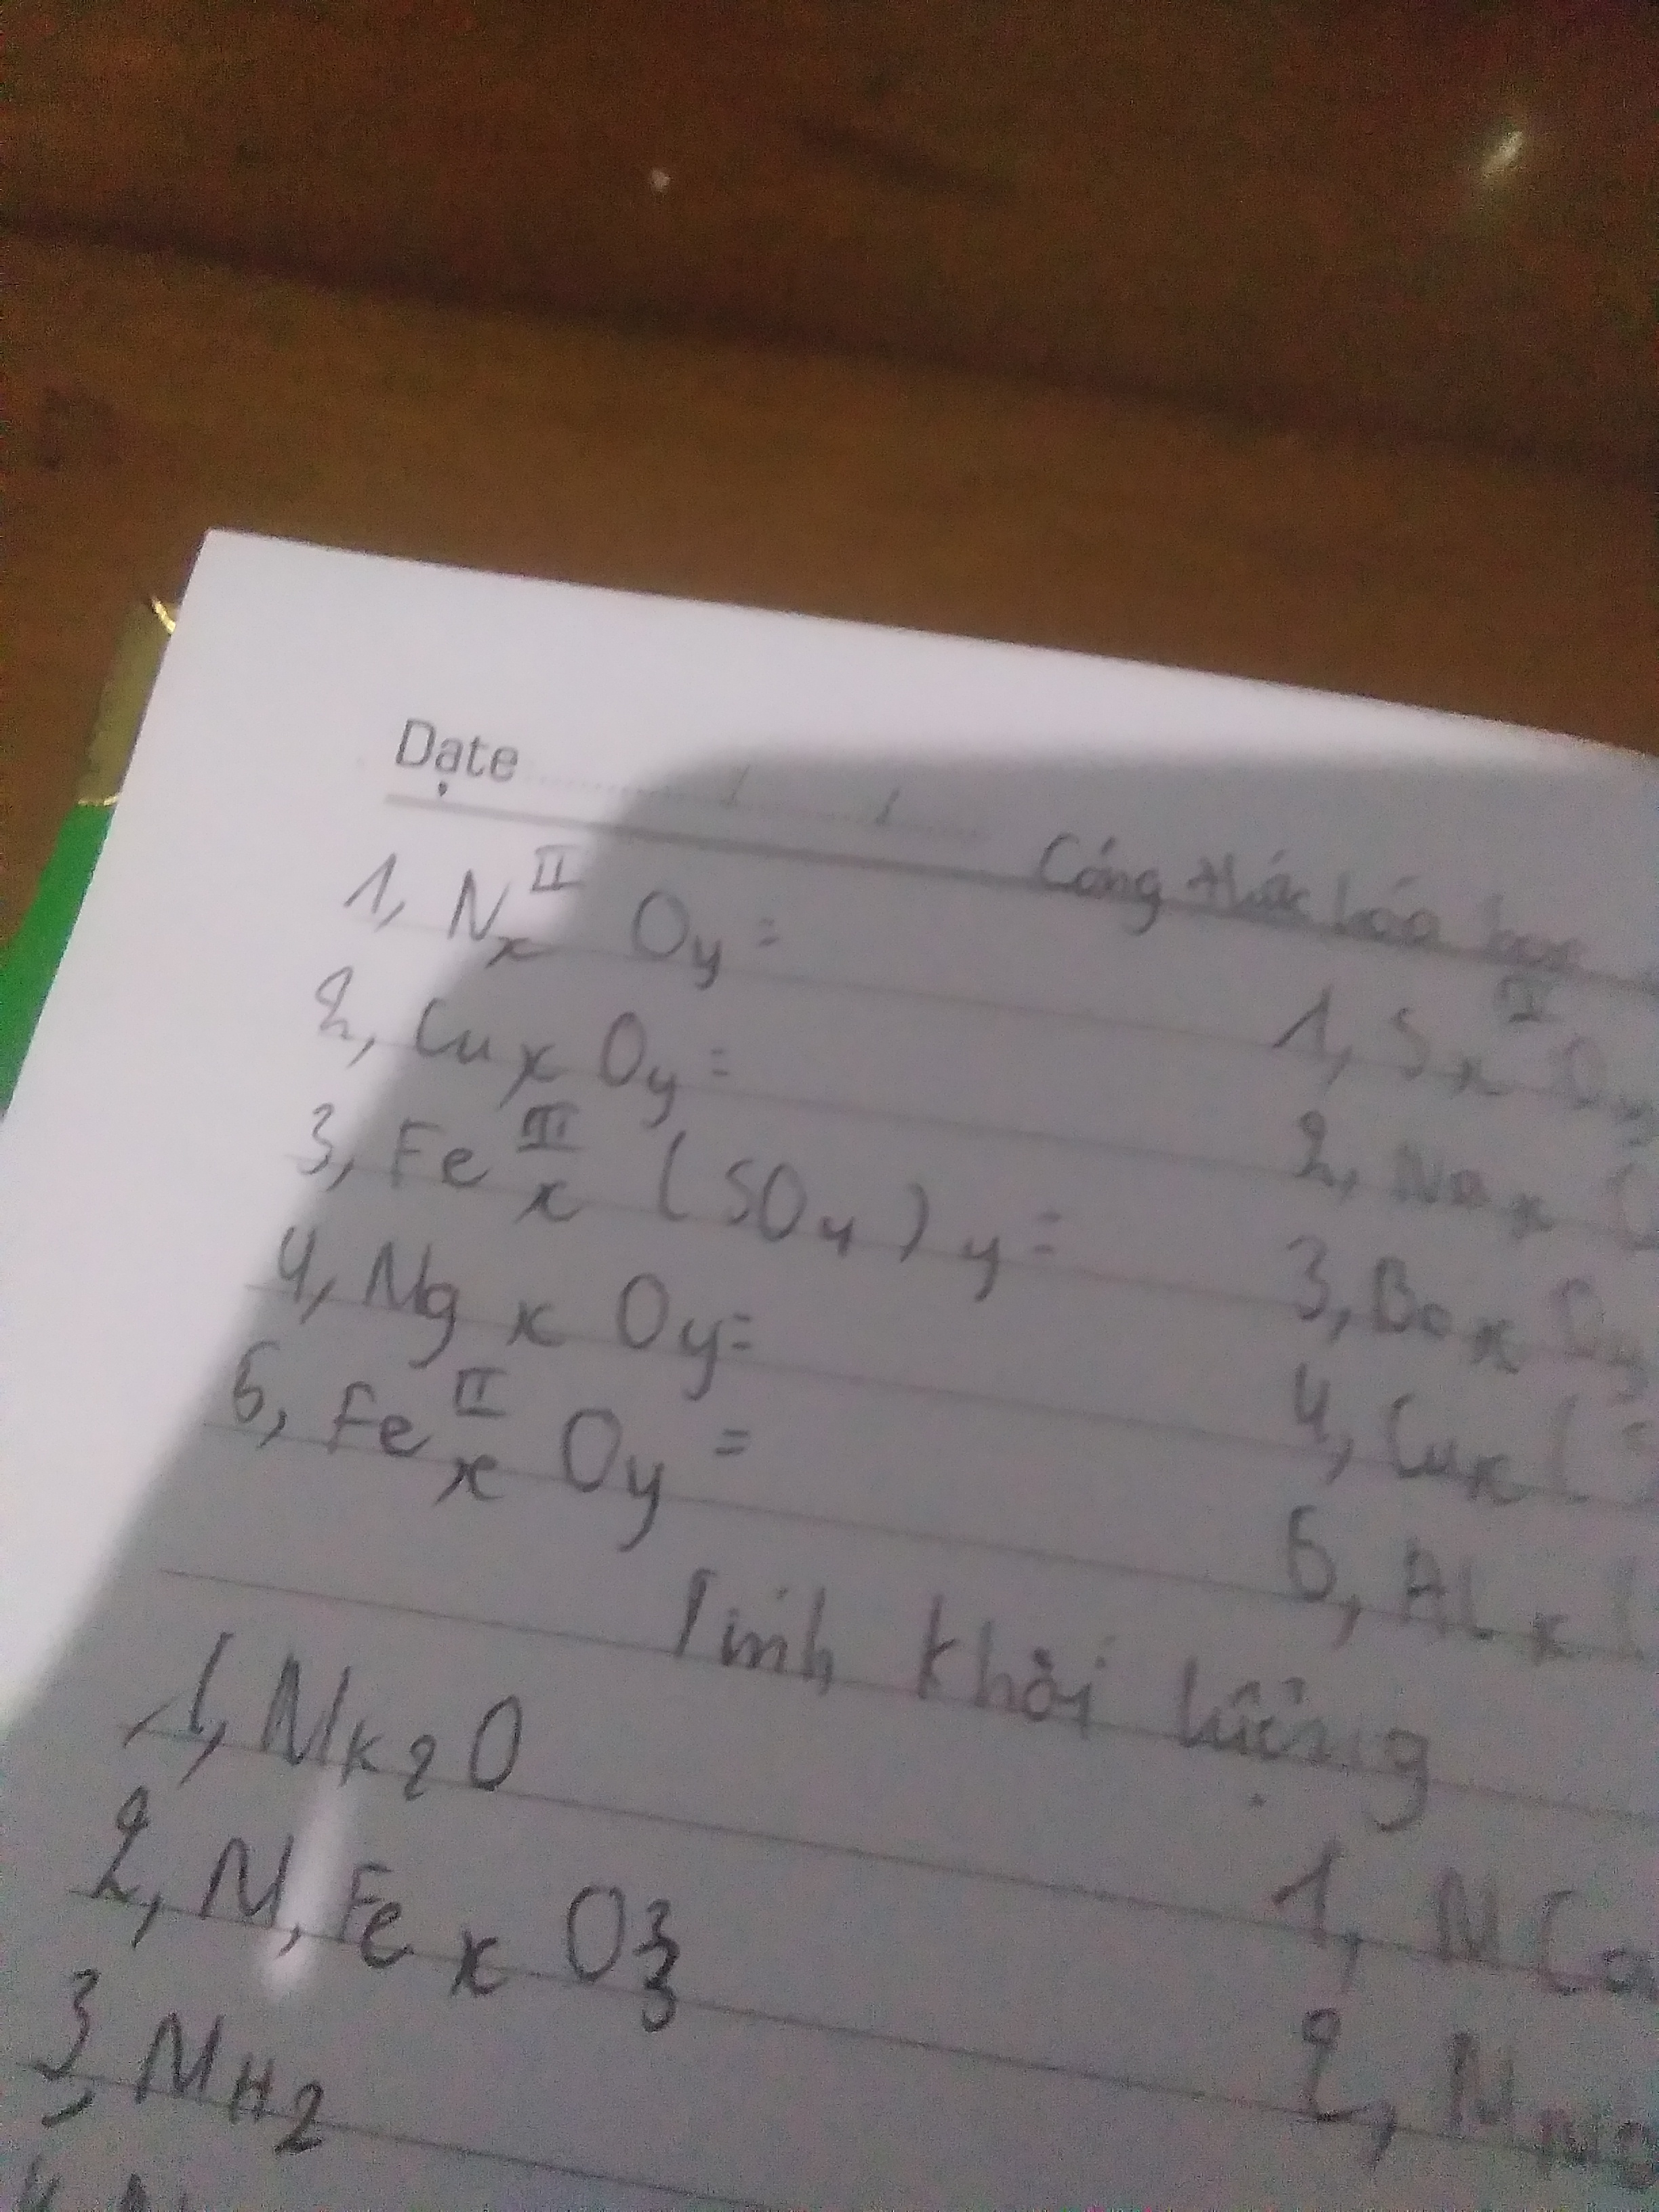 Date
Công thức hóa học
1, N II x Oy =
2, Cux Oy =
3, Fe III x (SO4) y =
4, Mg x Oy =
5, Fe II x Oy =
1, Sx Oy
2, Na x
3, Ba x Oy
4, Cux (
5, AL x (
Tính khối lượng
1, MK2O
2, M, Fe x O3
3, MH2
1, M Ca
2, M